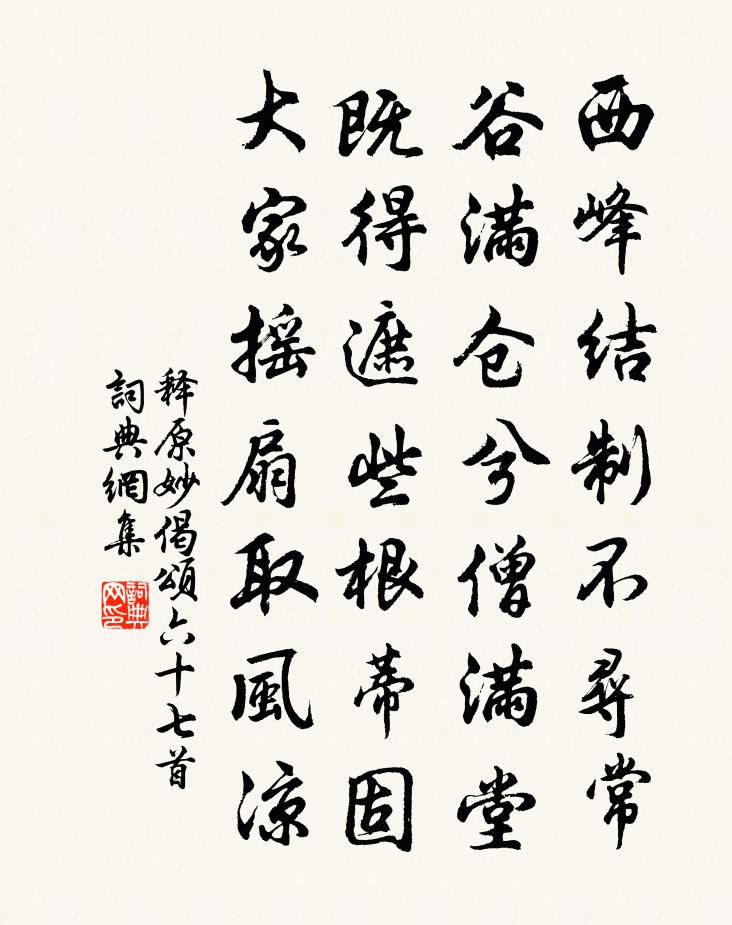 西峰结制不尋常
谷满仓兮僧满堂
既得遮些根蒂固
大家摇扇取風凉
释原妙偈颂六十七首
詞典網集
詞典网印